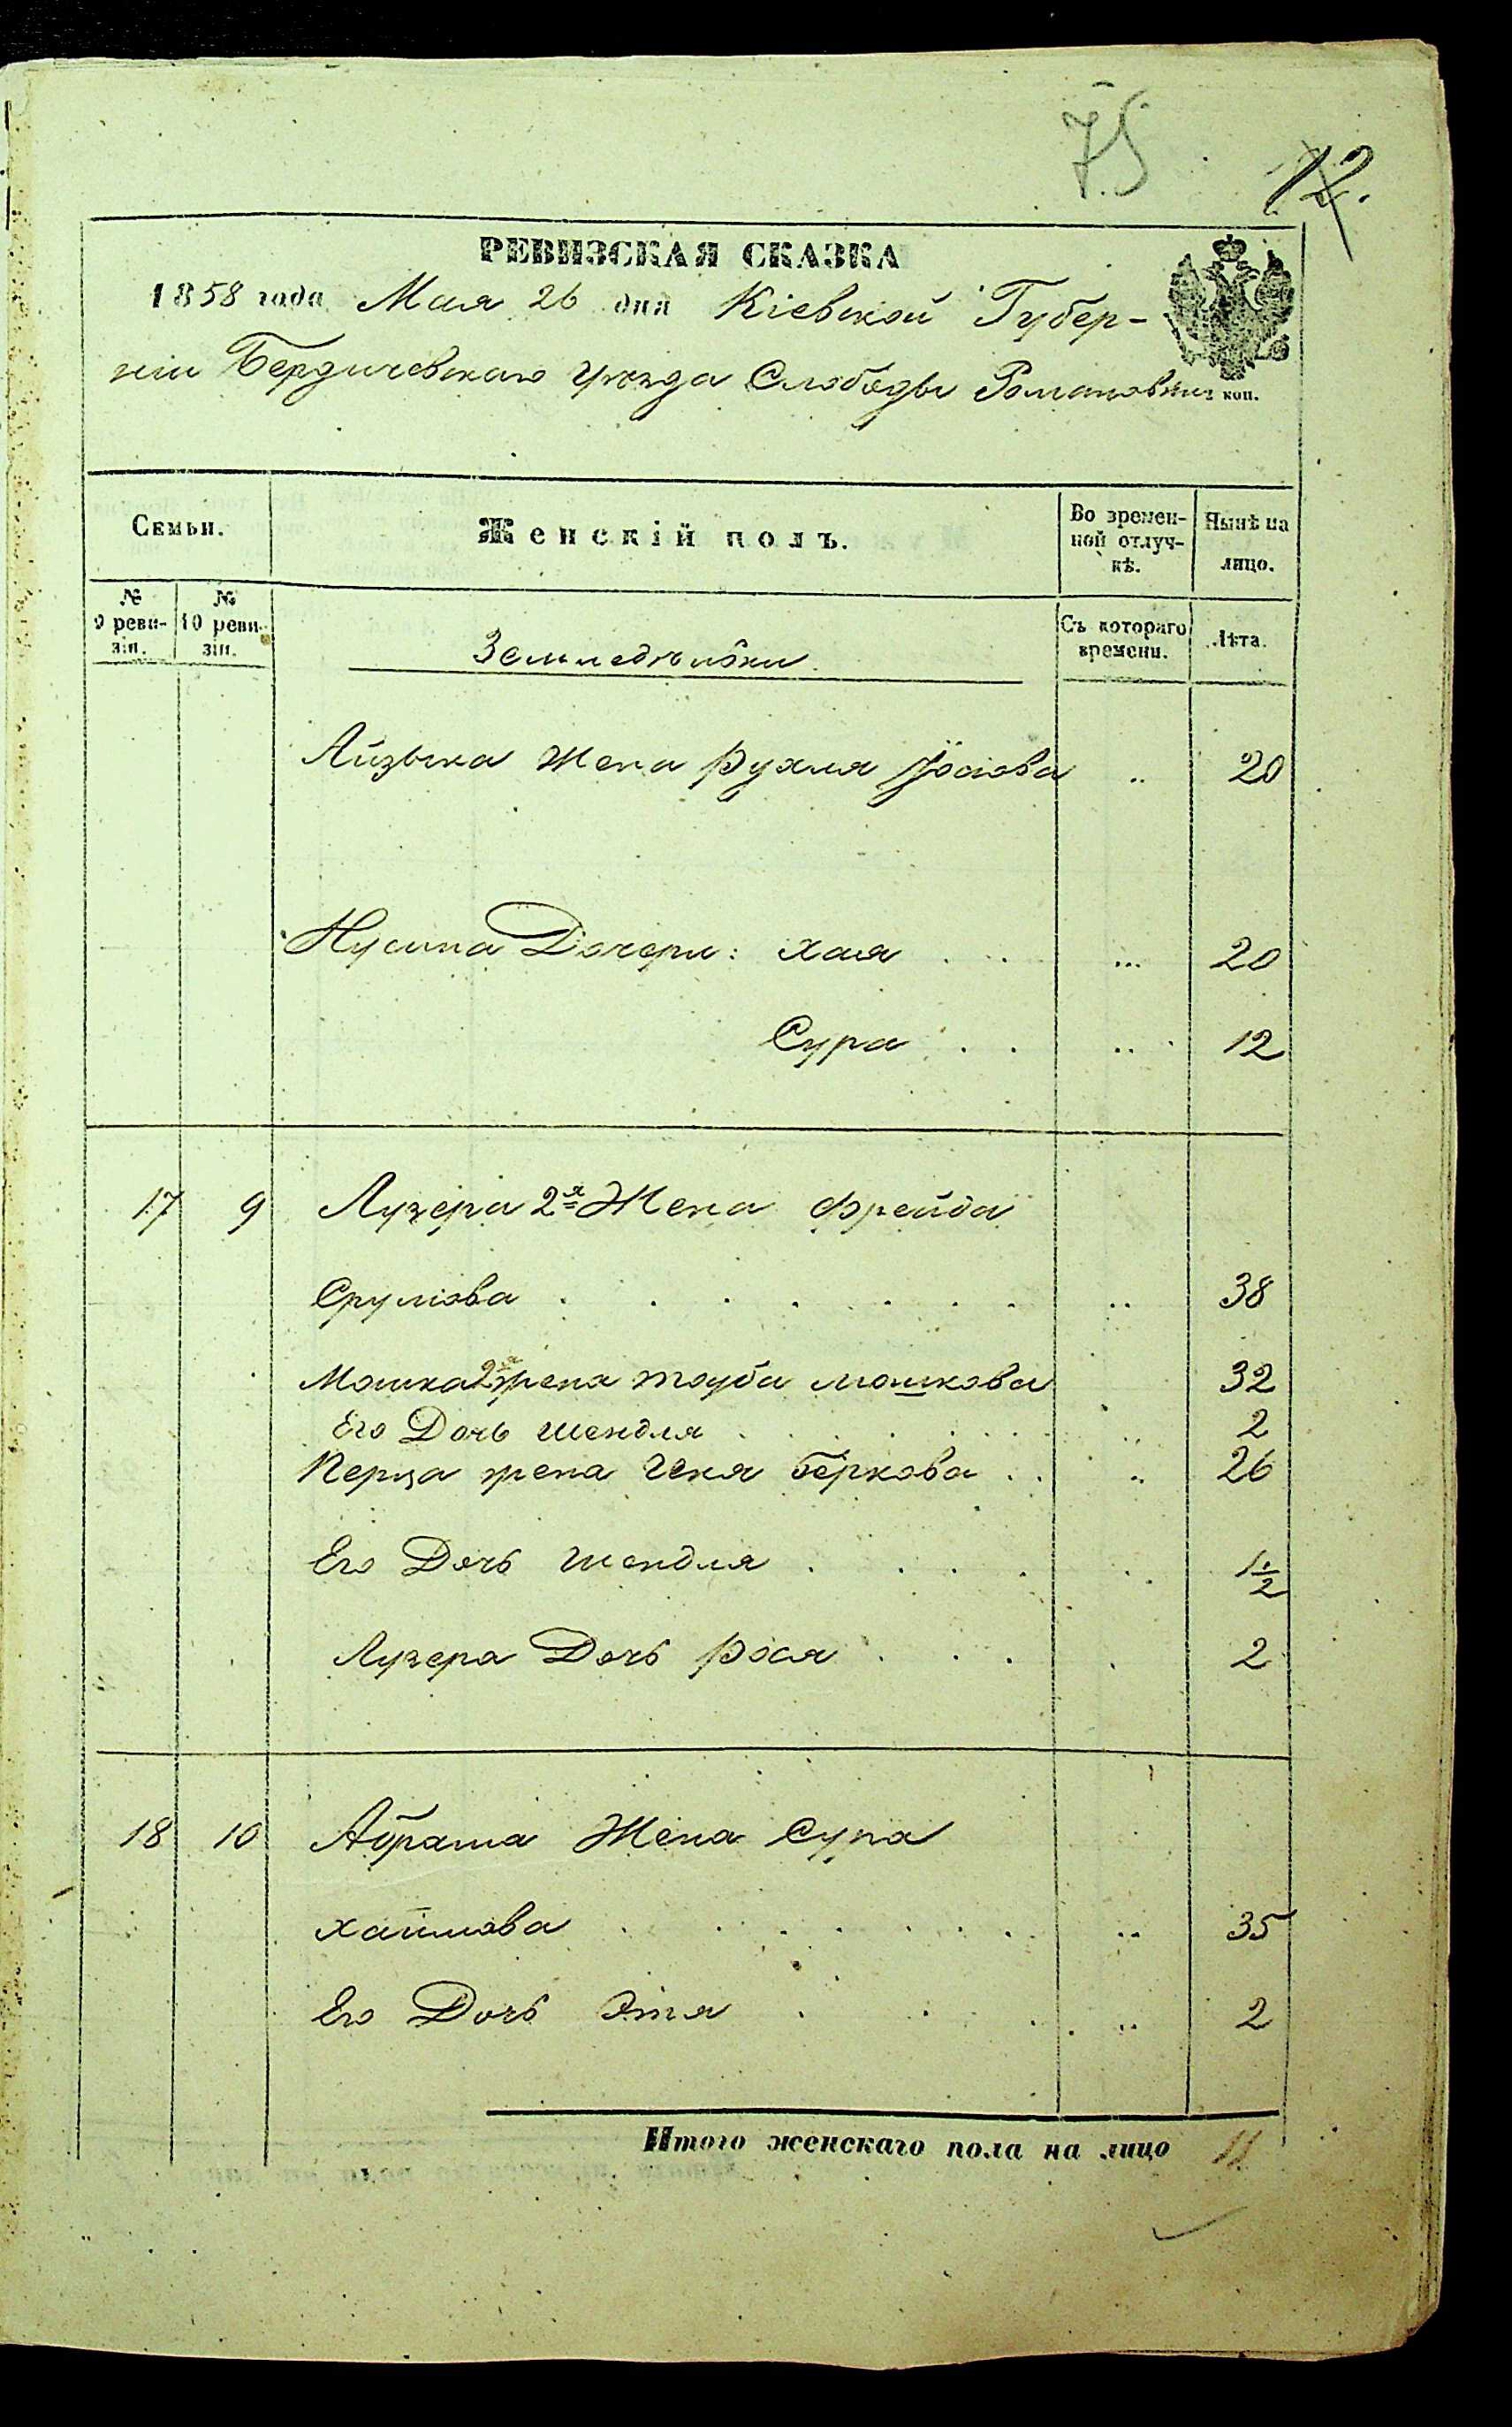 75
12.
РЕВИЗСКАЯ СКАЗКА
1858 года Мая 26 дня Кіевской Губер-
ніи Бердичевскаго Уѣзда Слободы Романовки коп.
Семьи.
Женскій полъ.
Во времен-
ной отлуч-
кѣ.
Нынѣ на
лицо.
№ 9 реви-
зіи.
№ 10 реви-
зіи.
Земледѣлки
Съ котораго
времени.
Лѣта.
Айзыка Жена Рухля Іосіова .. 20
Нусина Дочери: Хая . . ... 20
Сура . . .. 12
17 9 Лузера 2я Жена Фрейда
Срулiова . . . . . . . .. 38
Мошка 2я жена Тауба Мошкова 32
Его Дочь Шендля . . . . . .. 2
Перца жена Геня Беркова . . .. 26
Его Дочь Шендля . . . . .. 1½
Лузера Дочь Рося . . . . 2
18 10 Абрама Жена Сура
Хаимова . . . . . . . .. 35
Его Дочь Этя . . . .. 2
Итого женскаго пола на лицо 11